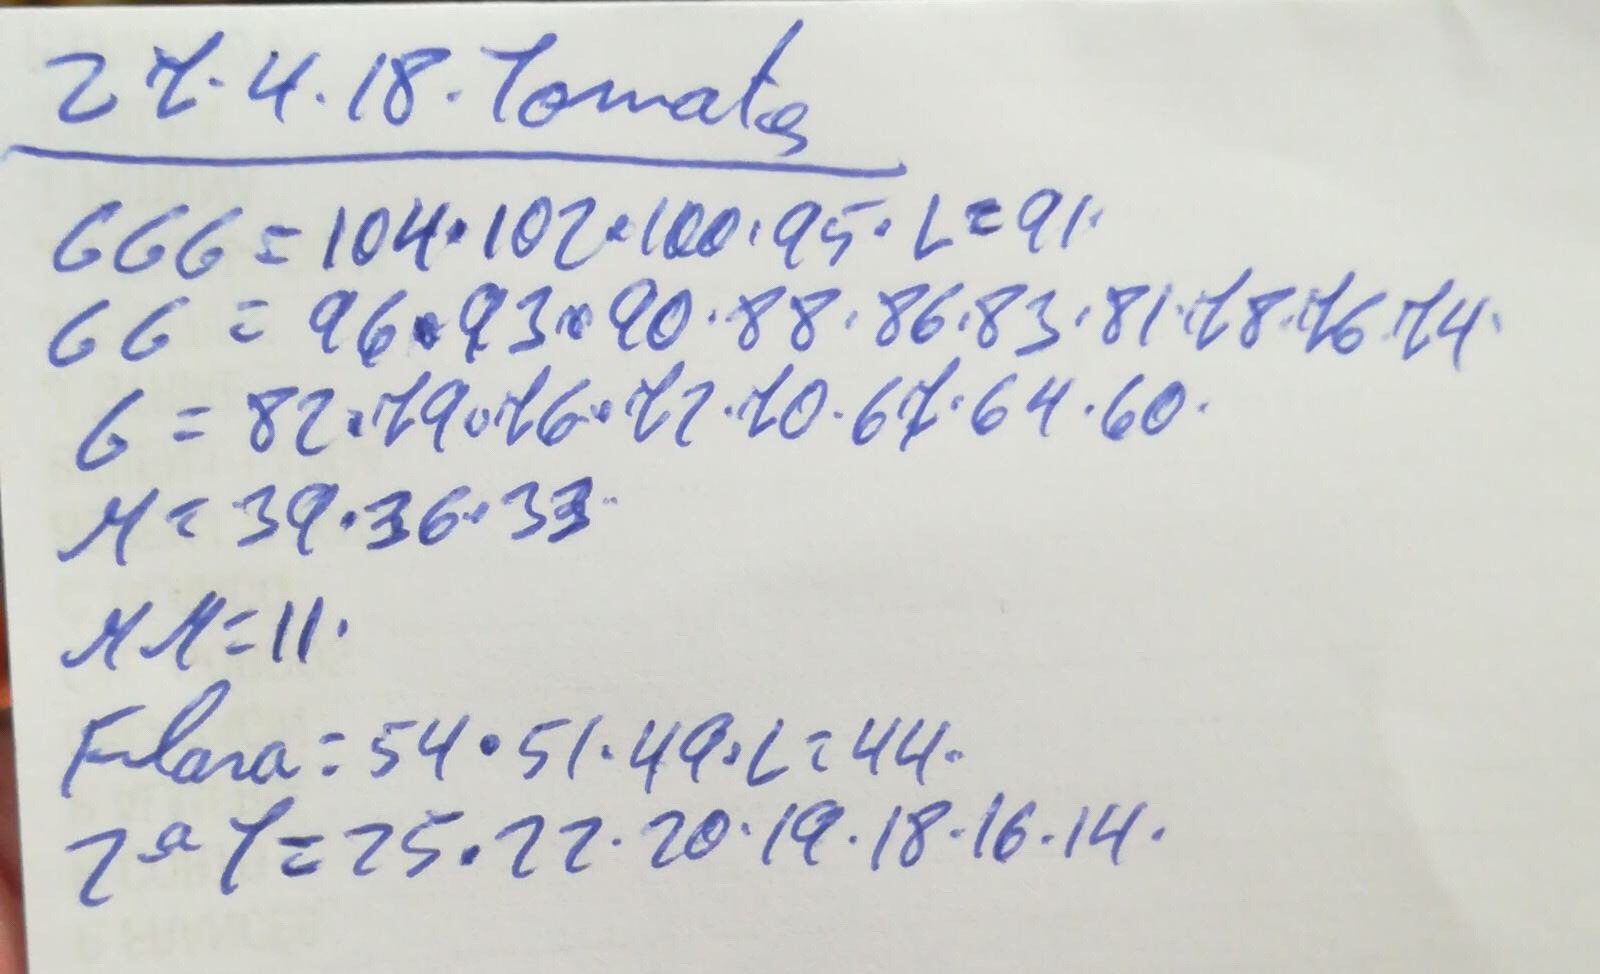 27.4.18. Tomates
GGG = 104.102.100.95. L=91.
GG = 96.93.90.88.86.83.81.78.76.74.
G = 82.79.76.72.70.67.64.60.
M = 39.36.33.
MM = 11.
Flora = 54.51.49. L=44.
2ª T = 25.22.20.19.18.16.14.